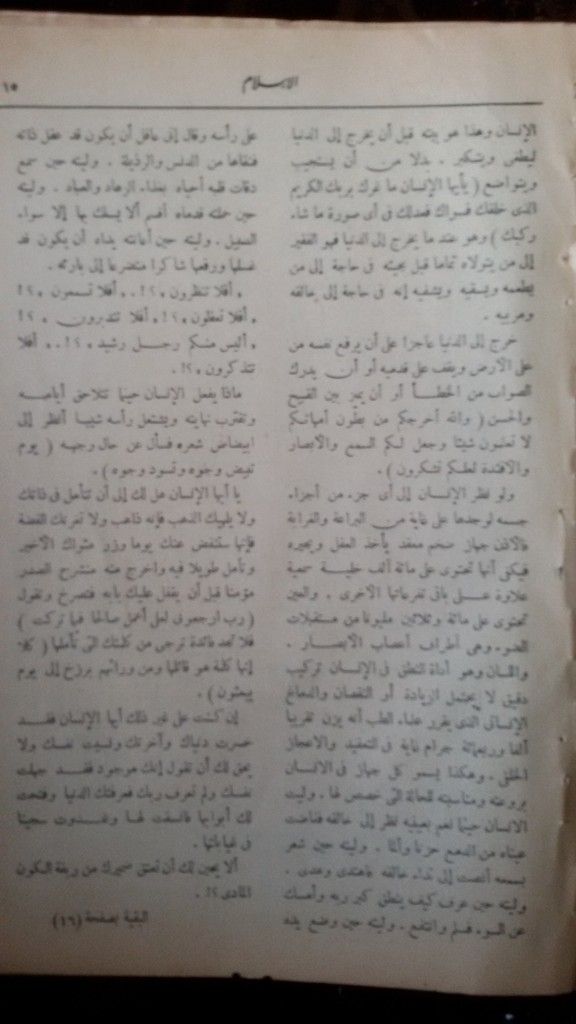 الإسلام
١٥
الإنسان وهذا هو بيته قبل أن يخرج إلى الدنيا
ليطغى ويتكبر . بدلا من أن يستجيب
ويتواضع ( يأيها الإنسان ما غرك بربك الكريم
الذى خلقك فسواك فعدلك فى أى صورة ما شاء
ركبك ) وهو عند ما يخرج إلى الدنيا فهو الفقير
إلى من يتولاه تماما قبل مجيئه فى حاجة إلى من
يطعمه ويسقيه ويشفيه إنه فى حاجة إلى خالقه
ومربيه .
خرج إلى الدنيا عاجزا على أن يرفع نفسه من
على الأرض ويقف على قدميه أو أن يدرك
الصواب من الخطأ أو أن يميز بين القبيح
والحسن ( والله أخرجكم من بطون أمهاتكم
لا تعلمون شيئا وجعل لكم السمع والأبصار
والافئدة لعلكم تشكرون ) .
ولو نظر الإنسان إلى أى جزء من أجزاء
جسمه لوجدها على غاية من البراعة والغرابة
فالأذن جهاز ضخم معقد يأخذ العقل ويحيره
فيكفى أنها تحتوى على مائة ألف خلية سمعية
علاوة على باقى تفرعاتها الأخرى . والعين
تحتوى على مائة وثلاثين مليونا من مستقبلات
الضوء وهى أطراف أعصاب الابصار .
واللسان وهو أداة النطق فى الإنسان تركيب
دقيق لا يحتمل الزيادة أو النقصان والدماغ
الإنسانى الذى يقرر علماء الطب أنه يزن تقريبا
ألفا وربعمائة جرام غاية فى التعقيد والاعجاز
الخلقى . وهكذا يسمو كل جهاز فى الانسان
بروعته ومناسبته للحالة التى خصص لها . وليت
الانسان حينما نعم بعينيه نظر إلى خالقه ففاضت
عيناه من الدمع حزنا وألما . وليته حين شعر
بسمعه أنصت إلى نداء خالقه فاهتدى وهدى .
وليته حين عرف كيف ينطق كبر ربه وأمسك
عن السوء فسلم وانتفع . وليته حين وضع يده
على رأسه وقال إنى عاقل أن يكون قد عقل ذاته
فنقاها من الدنس والرذيلة . وليته حين سمع
دقات قلبه أحياه بغذاء الزهاد والعباد . وليته
حين حملته قدماه أقسم ألا يسلك بها إلا سواء
السبيل . وليته حين أعانته يداه أن يكون قد
غسلها ورفعها شاكرا متضرعا إلى بارئه .
، أفلا تنظرون ، ؟! . ، أفلا تسمعون ، ؟!
، أفلا تعقلون ، ؟! ، أفلا تتدبرون ، ؟!
، أليس منكم رجل رشيد ، ؟! . ، أفلا
تتذكرون ، ؟! .
ماذا يفعل الإنسان حينما تتلاحق أيامه
وتقترب نهايته ويشتعل رأسه شيبا أنظر إلى
ابيضاض شعره فسأل عن حال وجهه ( يوم
تبيض وجوه وتسود وجوه ) .
يا أيها الإنسان هل لك إلى أن تتأمل فى ذاتك
ولا يلهيك الذهب فإنه ذاهب ولا تغرنك الفضة
فإنها ستنفض عنك يوما وزر مثواك الأخير
وتأمل طويلا فيه واخرج منه منشرح الصدر
مؤمنا قبل أن يقفل عليك بابه فتصرخ وتقول
( رب ارجعون لعلى أعمل صالحا فيما تركت )
فلا تجد فائدة ترجى من كلمتك التى تأملها ( كلا
إنها كلمة هو قائلها ومن ورائهم برزخ إلى يوم
يبعثون ) .
إن كنت على غير ذلك أيها الإنسان فقد
خسرت دنياك وآخرتك ونسيت نفسك ولا
يحق لك أن تقول إنك موجود فقد جهلت
نفسك ولم تعرف ربك فعرفتك الدنيا وفتحت
لك أبوابها فانسقت لها وغدوت سجينا
فى غياباتها .
ألا يحين لك أن تعتق ضميرك من ربقة الكون
المادى ؟! .
البقية بصفحة (١٦)